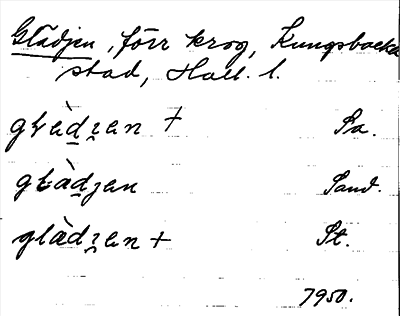 Glädjen, förr krog, Kungsbacka
stad, Hall. l.
glàdzen + Sa.
glàdjen Sand.
glàdzen + St.
7950.